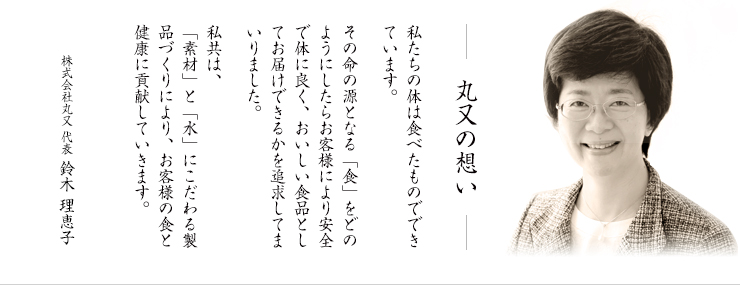 丸又の想い
私たちの体は食べたものででき
ています。
その命の源となる「食」をどの
ようにしたらお客様により安全
で体に良く、おいしい食品とし
てお届けできるかを追求してま
いりました。
私共は、
「素材」と「水」にこだわる製
品づくりにより、お客様の食と
健康に貢献していきます。
株式会社丸又 代表 鈴木 理恵子